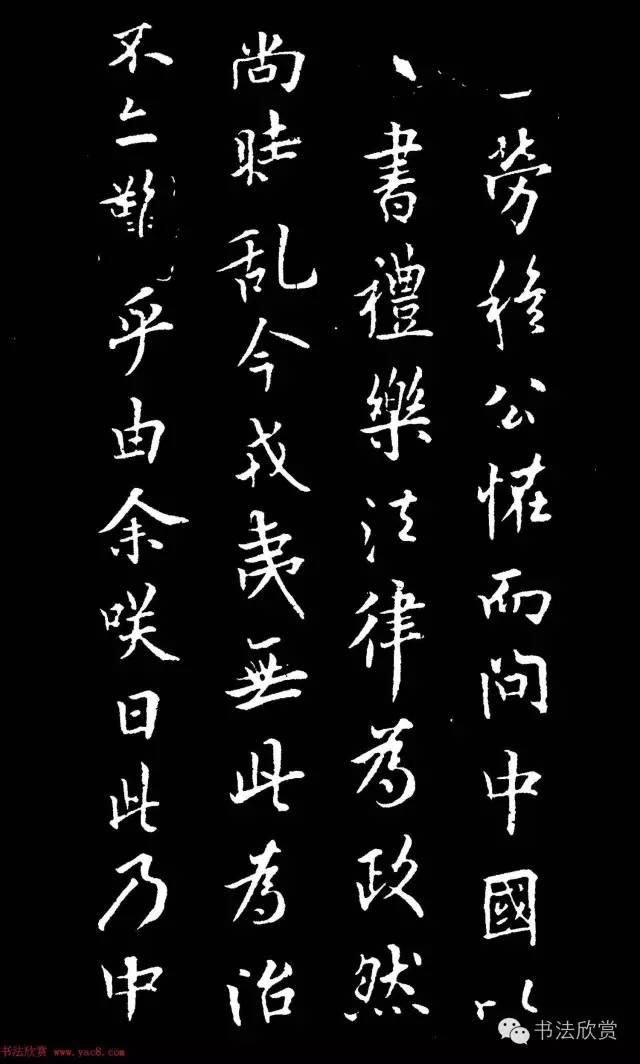 勞穆公恠而問中國以
書禮樂法律為政然
尚時乱今戎夷無此為治
不亦難乎由余咲曰此乃中
书法欣赏 www.yac8.com
书法欣赏